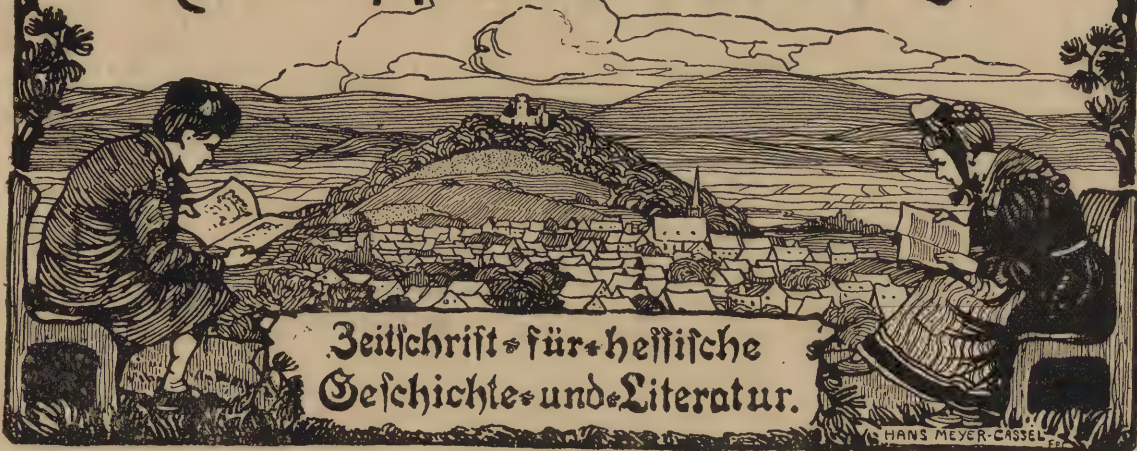 Zeitschrift für hessische
Geschichte und Literatur.
HANS MEYER-CASSEL